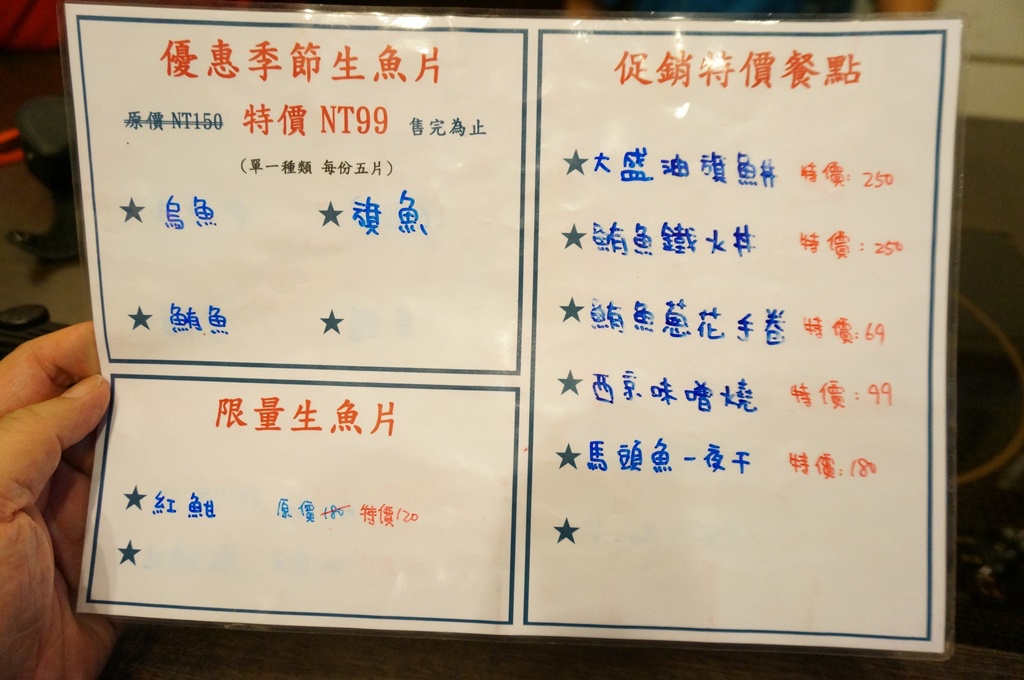 優惠季節生魚片
原價 NT150 特價 NT99 售完為止
(單一種類 每份五片)
★ 烏魚 ★ 旗魚
★ 鮪魚 ★
限量生魚片
★ 紅魽 原價180 特價120
★
促銷特價餐點
★ 大盛油旗魚丼 特價:250
★ 鮪魚鐵火丼 特價:250
★ 鮪魚蔥花手卷 特價:69
★ 西京味噌燒 特價:99
★ 馬頭魚一夜干 特價:180
★